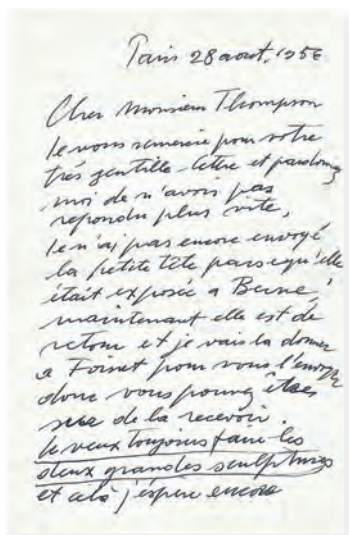 Paris 28 aout. 1956
Cher Monsieur Thompson
Je vous remercie pour votre
très gentille lettre et pardonnez
moi de n'avoir pas
repondu plus vite,
Je n'ai pas encore envoyé
la petite tête parsequ'elle
était exposée a Berne,
maintenant elle est de
retour et je vais la donner
a Foinet pour vous l'envoyer
donc vous pouvez être
sur de la recevoir.
Je veux toujours faire les
deux grandes sculptures
et cela j'espere encore